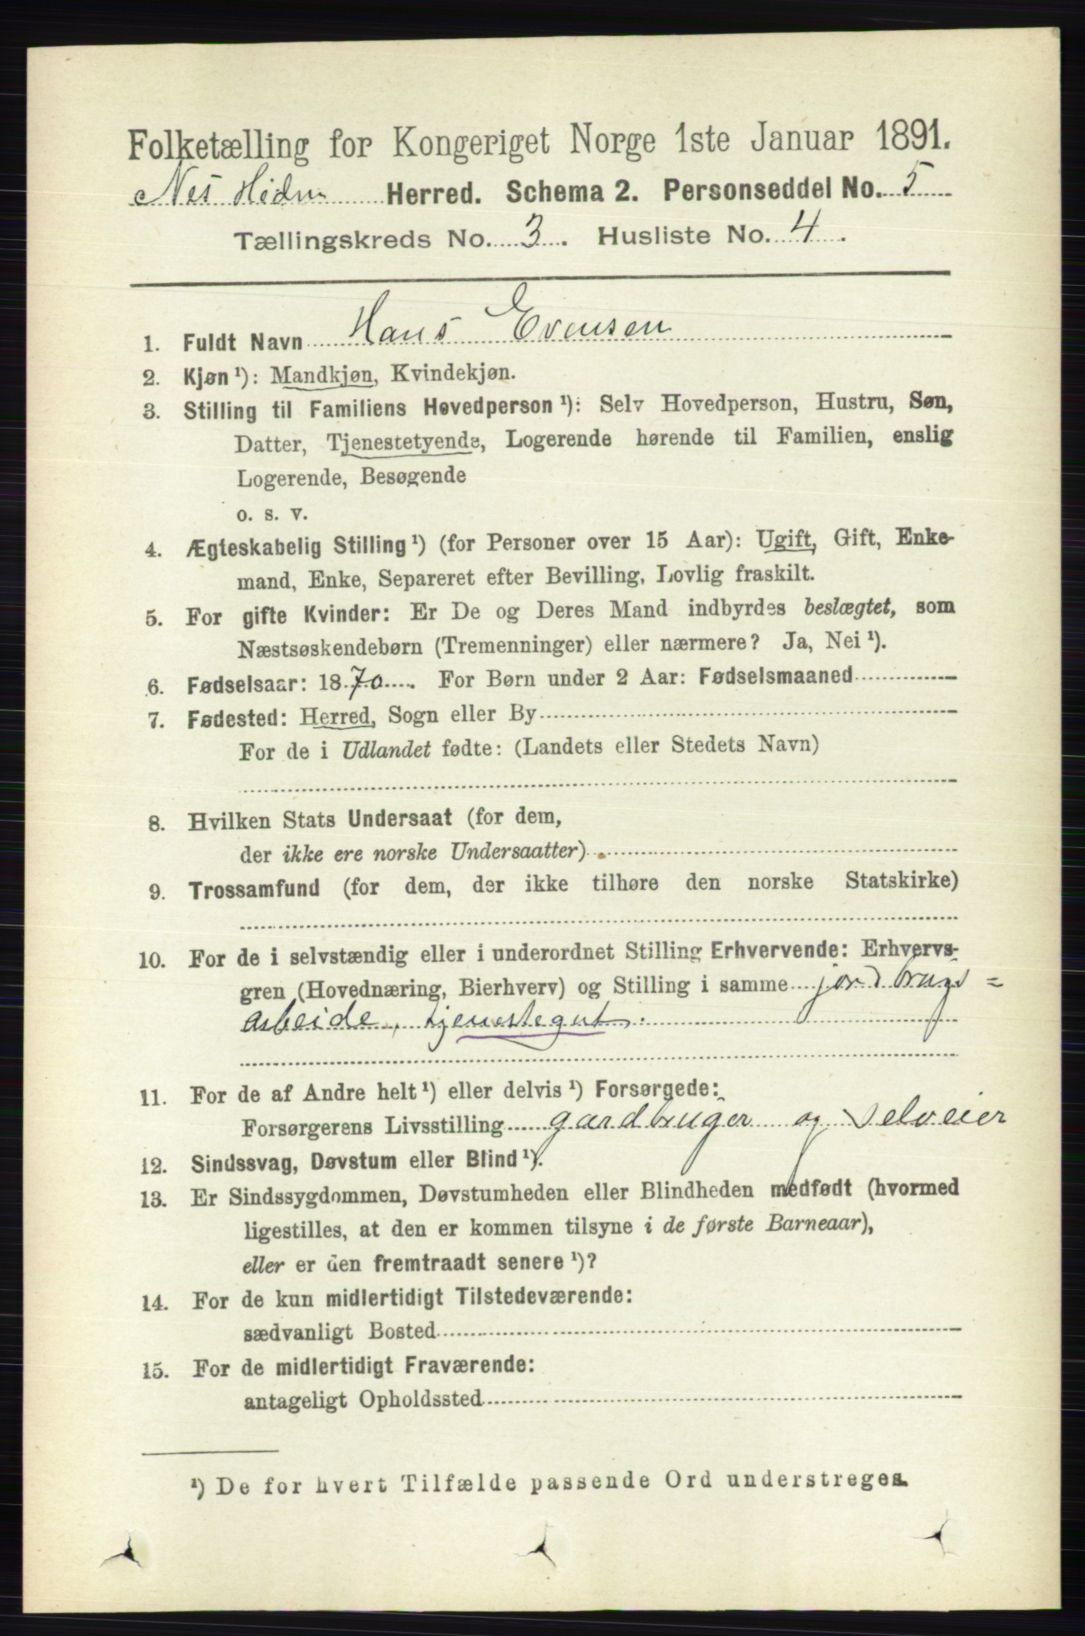 Folketælling for Kongeriget Norge 1ste Januar 1891.
Nes Hedm Herred. Schema 2. Personseddel No. 5
Tællingskreds No. 3. Husliste No. 4.
1. Fuldt Navn Hans Evensen
2. Kjøn ¹): Mandkjøn, Kvindekjøn.
3. Stilling til Familiens Hovedperson ¹): Selv Hovedperson, Hustru, Søn,
Datter, Tjenestetyende, Logerende hørende til Familien, enslig
Logerende, Besøgende
o. s. v.
4. Ægteskabelig Stilling ¹) (for Personer over 15 Aar): Ugift, Gift, Enke-
mand, Enke, Separeret efter Bevilling, Lovlig fraskilt.
5. For gifte Kvinder: Er De og Deres Mand indbyrdes beslægtet, som
Næstsøskendebørn (Tremenninger) eller nærmere? Ja, Nei ¹).
6. Fødselsaar: 1870. For Børn under 2 Aar: Fødselsmaaned
7. Fødested: Herred, Sogn eller By
For de i Udlandet fødte: (Landets eller Stedets Navn)
8. Hvilken Stats Undersaat (for dem,
der ikke ere norske Undersaatter)
9. Trossamfund (for dem, der ikke tilhøre den norske Statskirke)
10. For de i selvstændig eller i underordnet Stilling Erhvervende: Erhvervs-
gren (Hovednæring, Bierhverv) og Stilling i samme jordbrugs=
arbeide, tjenestegut.
11. For de af Andre helt ¹) eller delvis ¹) Forsørgede:
Forsørgerens Livsstilling gardbruger og selveier
12. Sindssvag, Døvstum eller Blind ¹).
13. Er Sindssygdommen, Døvstumheden eller Blindheden medfødt (hvormed
ligestilles, at den er kommen tilsyne i de første Barneaar),
eller er den fremtraadt senere ¹)?
14. For de kun midlertidigt Tilstedeværende:
sædvanligt Bosted
15. For de midlertidigt Fraværende:
antageligt Opholdssted
¹) De for hvert Tilfælde passende Ord understreges.